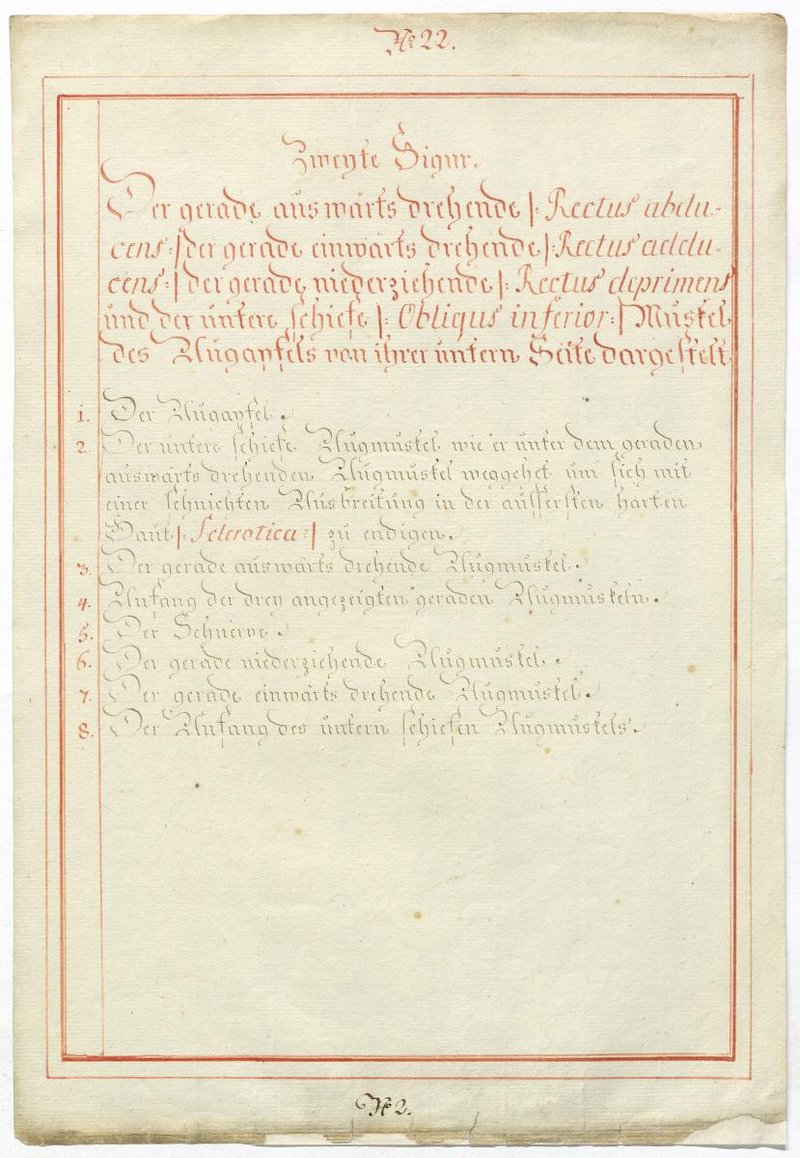 № 22.
Zweyte Figur.
Der gerade auswärts drehende |: Rectus abdu-
cens :| der gerade einwärts drehende |: Rectus addu-
cens :| der gerade niederziehende |: Rectus deprimens
und der untere schiefe |: Obliqus inferior :| Muskel
des Augapfels von ihrer untern Seite dargestelt
1. Der Augapfel.
2. Der untere schiefe Augmuskel wie er unter dem geraden
auswärts drehenden Augmuskel weggehet um sich mit
einer sehnichten Ausbreitung in der äussersten harten
Haut |: Sclerotica :| zu endigen.
3. Der gerade auswärts drehende Augmuskel.
4. Anfang der drey angezeigten geraden Augmuskeln.
5. Der Sehnerve.
6. Der gerade niederziehende Augmuskel.
7. Der gerade einwärts drehende Augmuskel.
8. Der Anfang des untern schiefen Augmuskels.
№ 2.